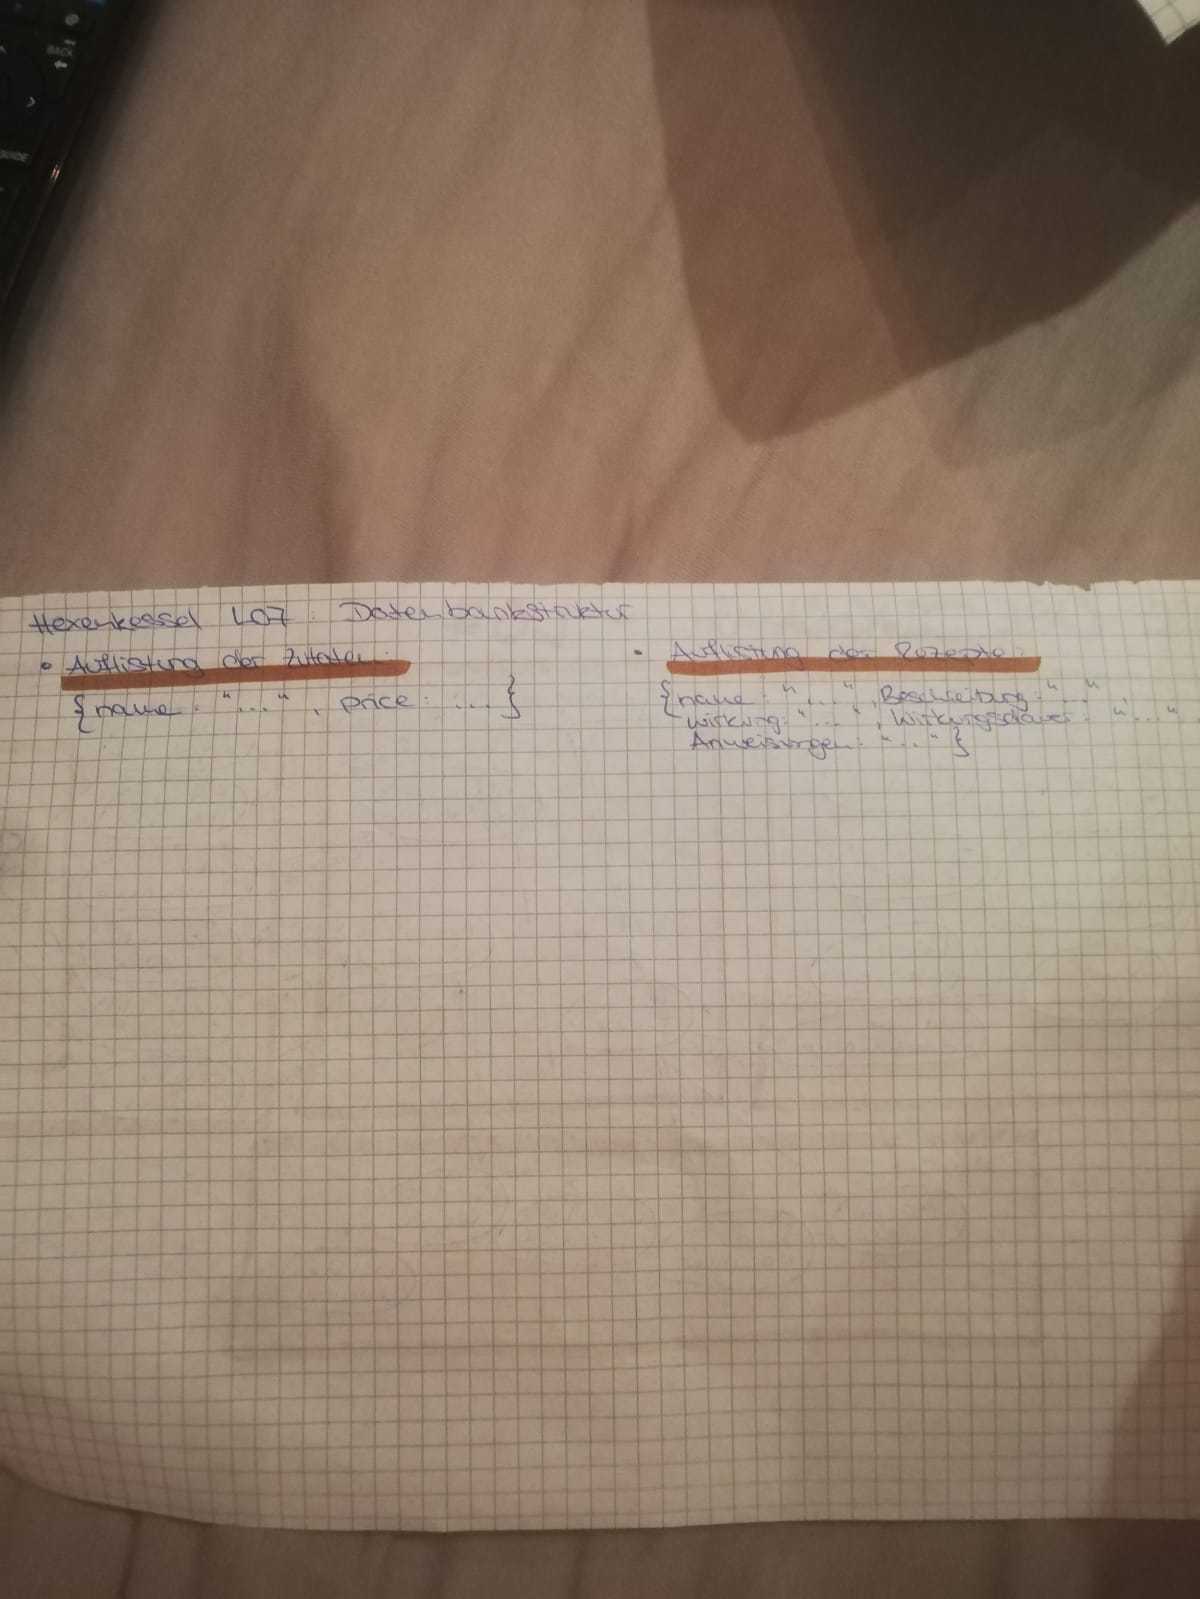 BACK
GUIDE
Hexenkessel L07: Datenbankstruktur
• Auflistung der Zutaten:
{name: "...", price: ...}
• Auflistung der Rezepte:
{name: "...", Beschreibung: "...",
Wirkung: "...", Wirkungsdauer: "..."
Anweisungen: "..."}